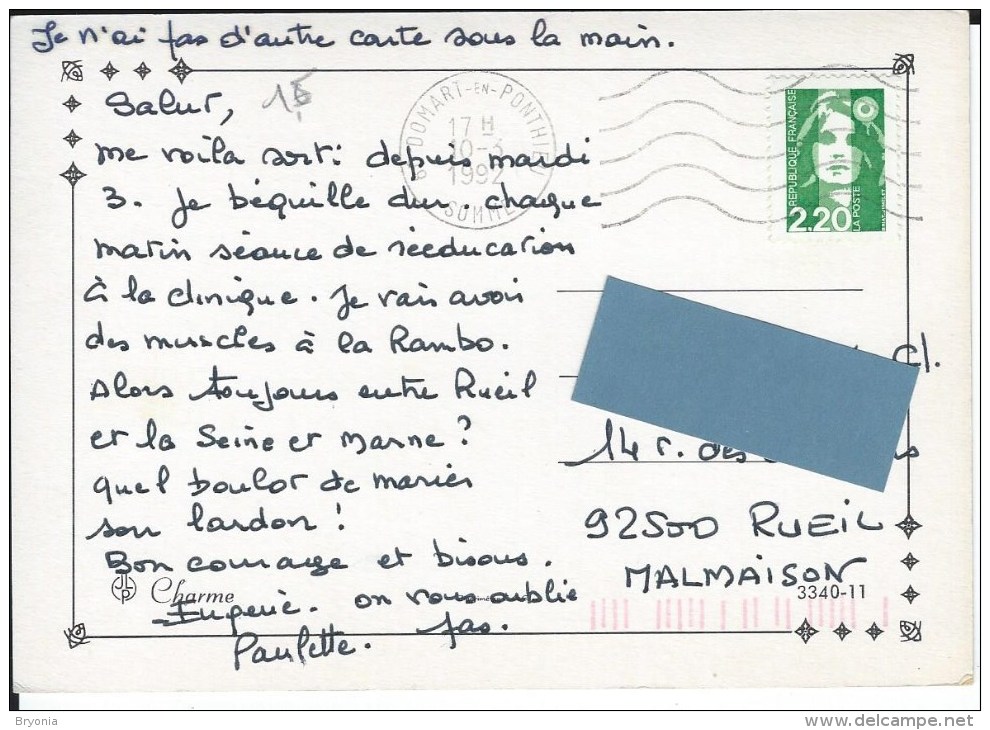 Je n'ai pas d'autre carte sous la main.
15
Salut,
me voila sorti depuis mardi
3. Je béquille dur. chaque
matin séance de rééducation
à la clinique. Je vais avoir
des muscles à la Rambo.
Alors toujours entre Rueil
et la Seine et Marne ?
quel boulot de marier
son lardon !
Bon courage et bisous.
Eugenie. on vous oublie
pas.
Paulette.
DOMART-EN-PONTHIEU
17 H
10-3
1992
SOMME
RÉPUBLIQUE FRANÇAISE
2,20
LA POSTE
14 r. des
92500 RUEIL
MALMAISON
Charme
3340-11
Bryonia
delcampe.net